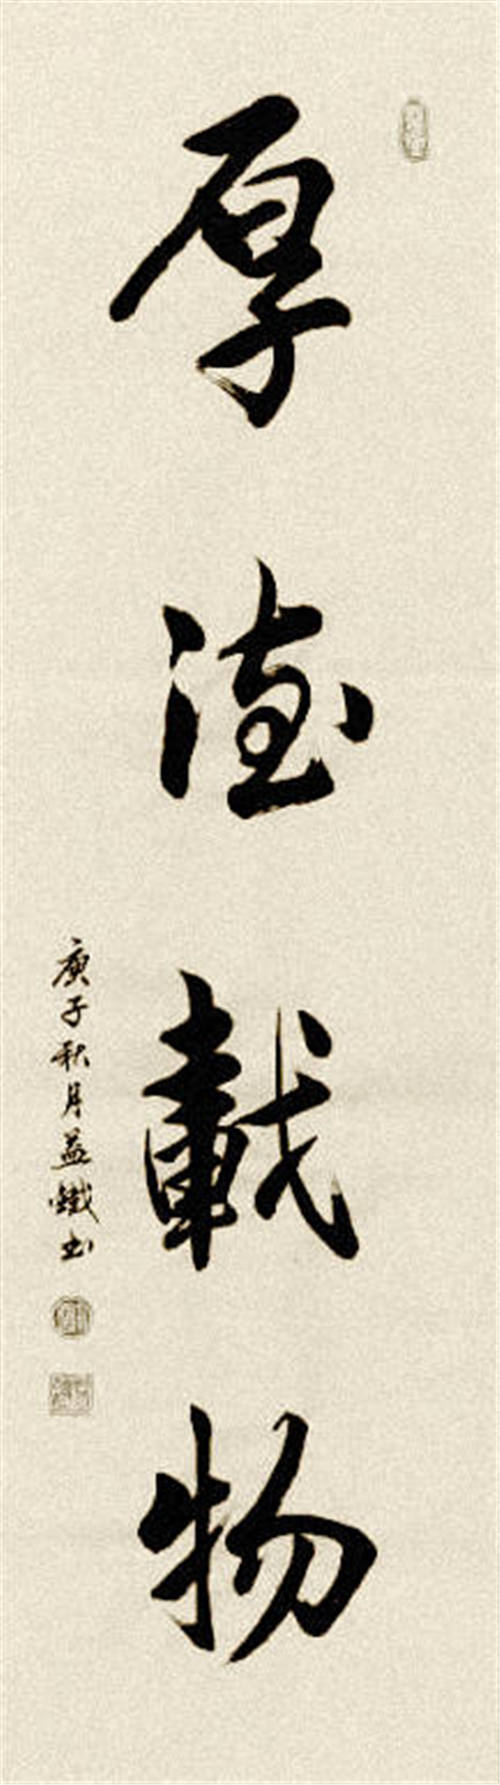 厚德载物
庚子秋月益鐵书